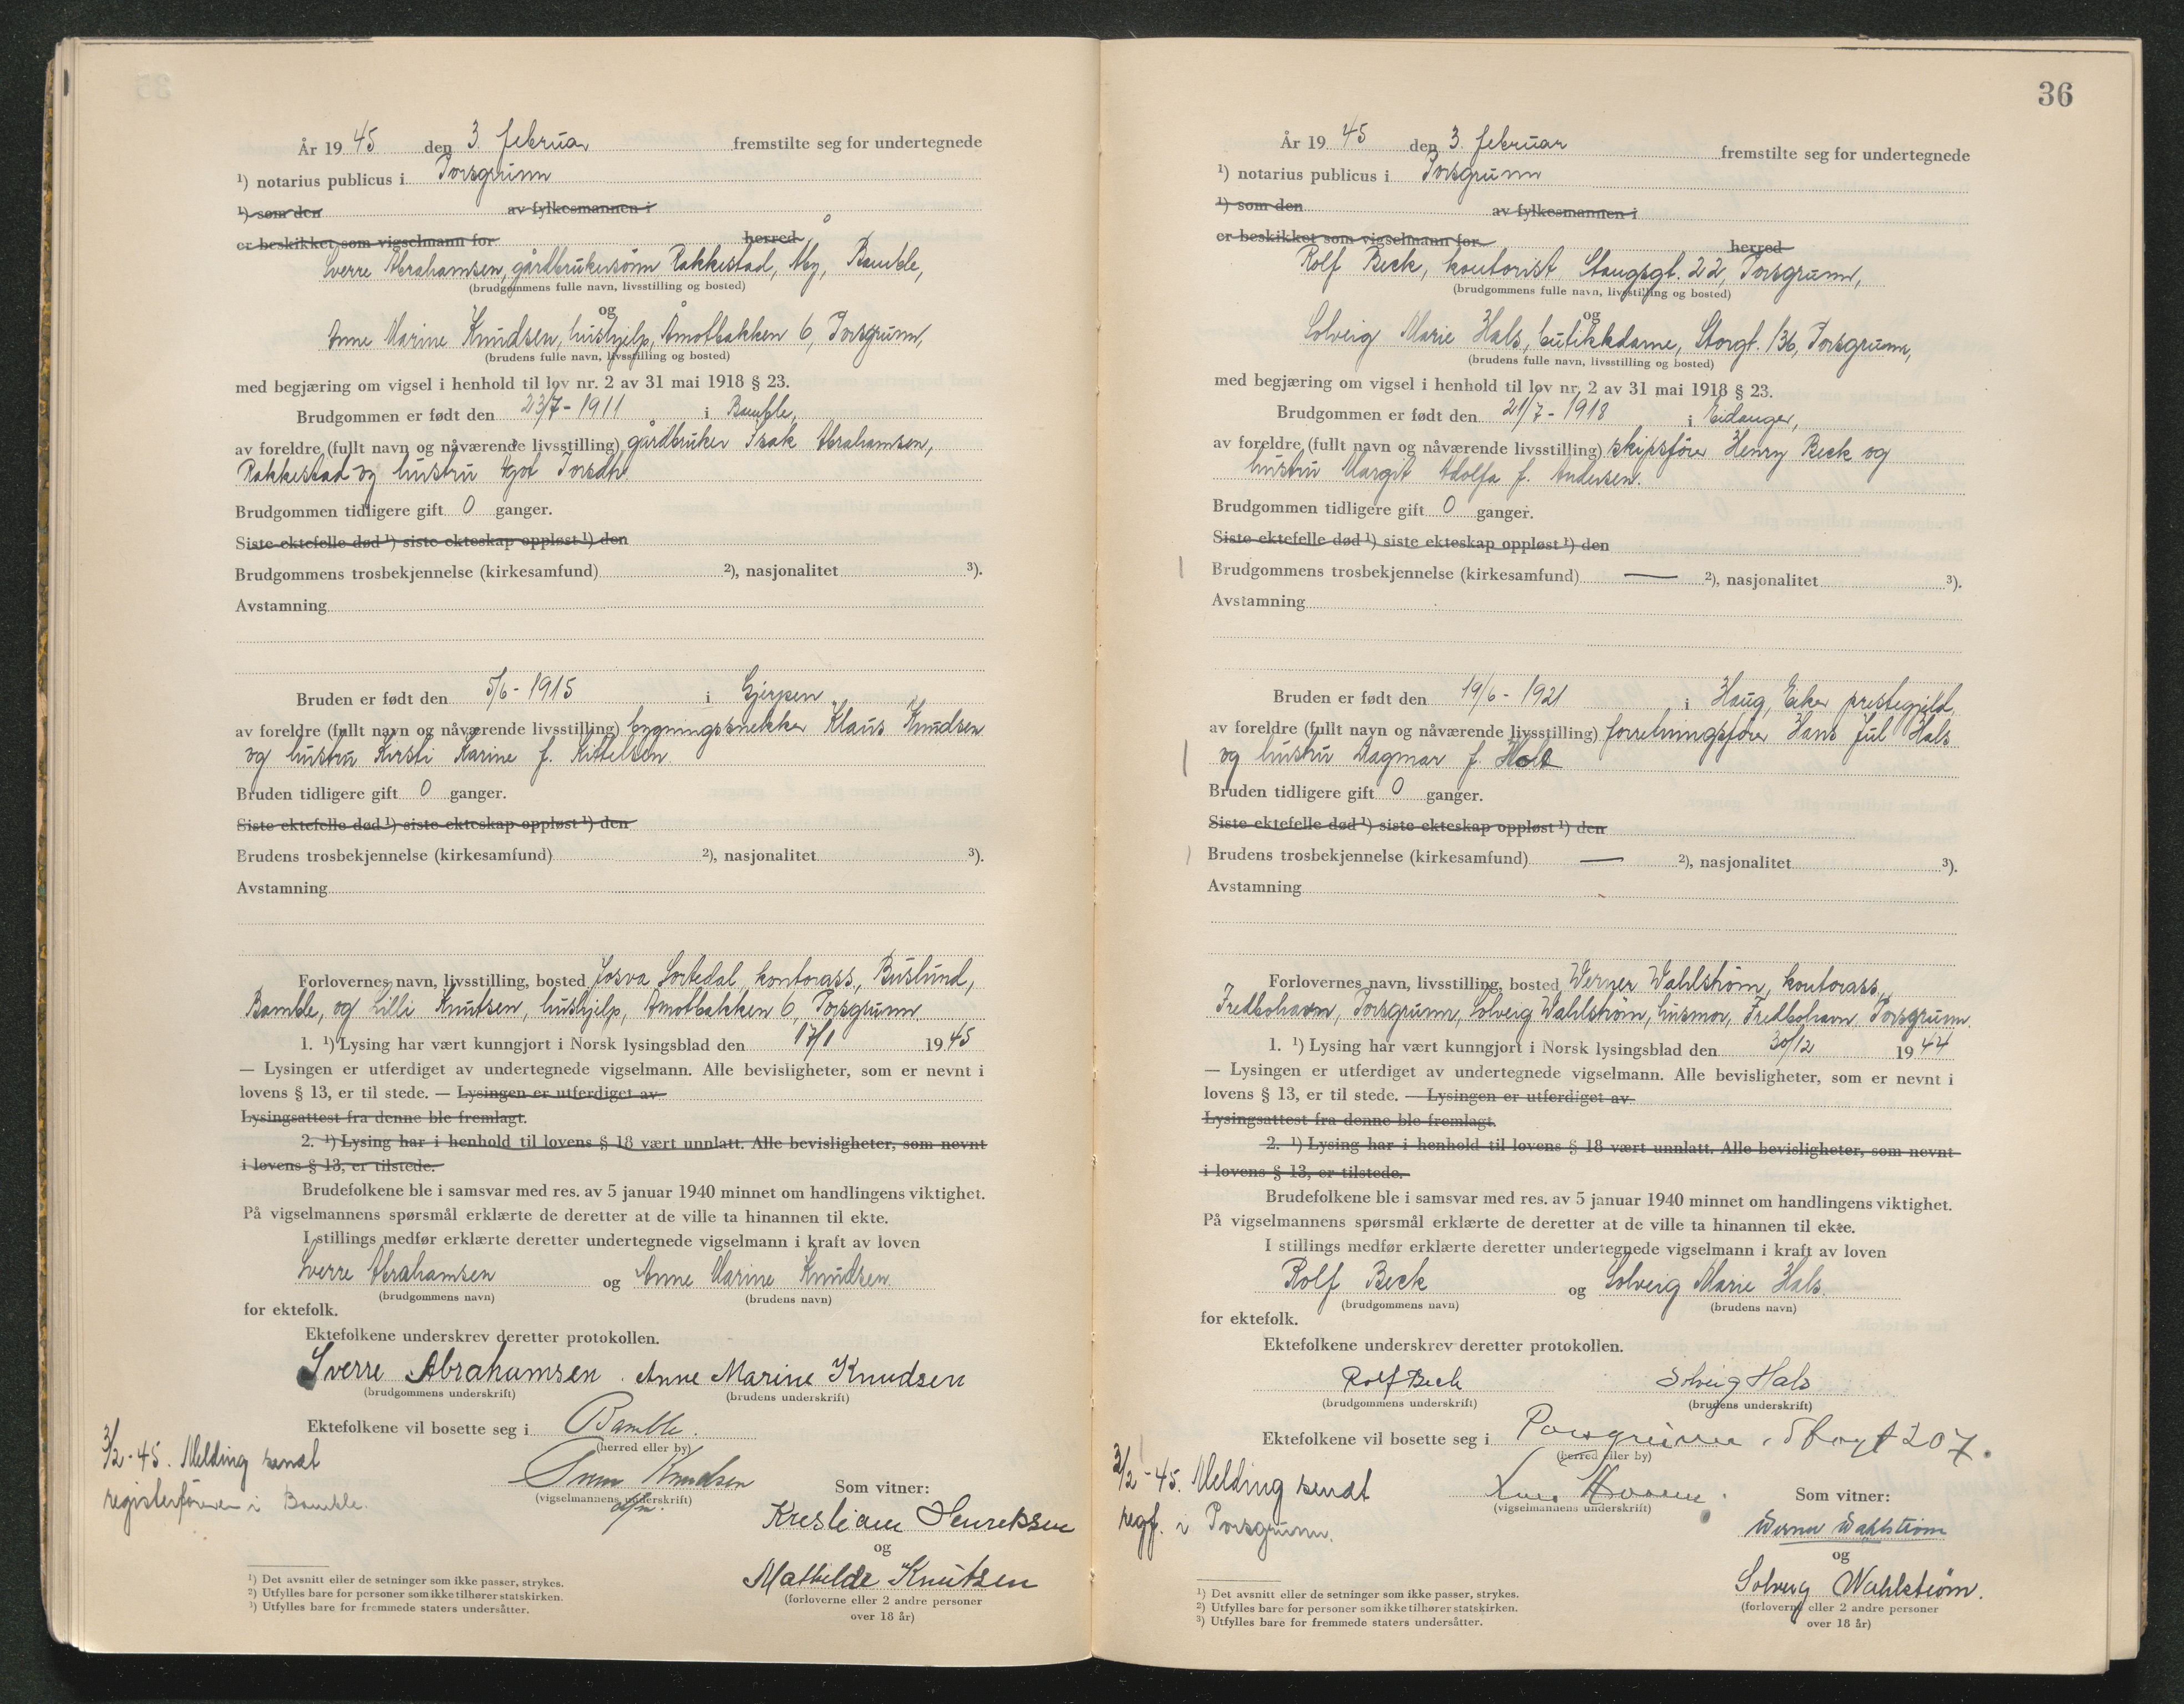 År 19 45 den 3. februar fremstilte seg for undertegnede
¹) notarius publicus i Porsgrunn
¹) som den av fylkesmannen i
er beskikket som vigselmann for herred
Sverre Abrahamsen, gårdbrukersønn Rakkestad, Åby, Bamble,
(brudgommens fulle navn, livsstilling og bosted)
og
Anne Marine Knudsen, hushjelp, Åmotbakken 6, Porsgrunn,
(brudens fulle navn, livsstilling og bosted)
med begjæring om vigsel i henhold til lov nr. 2 av 31 mai 1918 § 23.
Brudgommen er født den 23/7 - 1911 i Bamble,
av foreldre (fullt navn og nåværende livsstilling) gårdbruker Isak Abrahamsen,
Rakkestad og hustru
Brudgommen tidligere gift 0 ganger.
Siste ektefelle død ¹) siste ekteskap oppløst ¹) den
Brudgommens trosbekjennelse (kirkesamfund) ²), nasjonalitet ³).
Avstamning
Bruden er født den 5/6 - 1915 i Gjerpen
av foreldre (fullt navn og nåværende livsstilling) bygningssnekker Klaus Knudsen
og hustru Kirsti Karine f. Kittelsen.
Bruden tidligere gift 0 ganger.
Siste ektefelle død ¹) siste ekteskap oppløst ¹) den
Brudens trosbekjennelse (kirkesamfund) ²), nasjonalitet ³).
Avstamning
Forlovernes navn, livsstilling, bosted Josva Sortedal, kontorass., Buslund,
Bamble, og Lilli Knutsen, hushjelp, Åmotbakken 6, Porsgrunn.
1. ¹) Lysing har vært kunngjort i Norsk lysingsblad den 17/1 19 45
— Lysingen er utferdiget av undertegnede vigselmann. Alle bevisligheter, som er nevnt i
lovens § 13, er til stede. — Lysingen er utferdiget av
Lysingsattest fra denne ble fremlagt.
2. ¹) Lysing har i henhold til lovens § 18 vært unnlatt. Alle bevisligheter, som nevnt
i lovens § 13, er tilstede.
Brudefolkene ble i samsvar med res. av 5 januar 1940 minnet om handlingens viktighet.
På vigselmannens spørsmål erklærte de deretter at de ville ta hinannen til ekte.
I stillings medfør erklærte deretter undertegnede vigselmann i kraft av loven
Sverre Abrahamsen og Anne Marine Knudsen.
(brudgommens navn) (brudens navn)
for ektefolk.
Ektefolkene underskrev deretter protokollen.
Sverre Abrahamsen. Anne Marine Knudsen
(brudgommens underskrift) (brudens underskrift)
Ektefolkene vil bosette seg i Bamble.
(herred eller by)
3/2-45. Melding sendt
registerføreren i Bamble.
Knudsen
(vigselmannens underskrift)
Som vitner:
Kristian Henriksen
og
Mathilde Knutsen
(forloverne eller 2 andre personer
over 18 år)
¹) Det avsnitt eller de setninger som ikke passer, strykes.
²) Utfylles bare for personer som ikke tilhører statskirken.
³) Utfylles bare for fremmede staters undersåtter.
36
År 19 45 den 3. februar fremstilte seg for undertegnede
¹) notarius publicus i Porsgrunn
¹) som den av fylkesmannen i
er beskikket som vigselmann for herred
Rolf Beck, kontorist, Stangsgt. 22, Porsgrunn,
(brudgommens fulle navn, livsstilling og bosted)
og
Solveig Marie Hals, butikkdame, Storgt. 136, Porsgrunn,
(brudens fulle navn, livsstilling og bosted)
med begjæring om vigsel i henhold til lov nr. 2 av 31 mai 1918 § 23.
Brudgommen er født den 21/7 - 1918 i Eidanger,
av foreldre (fullt navn og nåværende livsstilling) skipsfører Henry Beck og
hustru Margit Adolfa f. Andersen.
Brudgommen tidligere gift 0 ganger.
Siste ektefelle død ¹) siste ekteskap oppløst ¹) den
Brudgommens trosbekjennelse (kirkesamfund) — ²), nasjonalitet ³).
Avstamning
Bruden er født den 19/6 - 1921 i Haug, Eiker prestegjeld,
av foreldre (fullt navn og nåværende livsstilling) forretningsfører Hans Jul Hals
og hustru Dagmar f. Holt
Bruden tidligere gift 0 ganger.
Siste ektefelle død ¹) siste ekteskap oppløst ¹) den
Brudens trosbekjennelse (kirkesamfund) — ²), nasjonalitet ³).
Avstamning
Forlovernes navn, livsstilling, bosted Werner Wahlstrøm, kontorass.,
Fredbohavn, Porsgrunn, Solveig Wahlstrøm, husmor, Fredbohavn Porsgrunn.
1. ¹) Lysing har vært kunngjort i Norsk lysingsblad den 30/12 19 44
— Lysingen er utferdiget av undertegnede vigselmann. Alle bevisligheter, som er nevnt i
lovens § 13, er til stede. — Lysingen er utferdiget av
Lysingsattest fra denne ble fremlagt.
2. ¹) Lysing har i henhold til lovens § 18 vært unnlatt. Alle bevisligheter, som nevnt
i lovens § 13, er tilstede.
Brudefolkene ble i samsvar med res. av 5 januar 1940 minnet om handlingens viktighet.
På vigselmannens spørsmål erklærte de deretter at de ville ta hinannen til ekte.
I stillings medfør erklærte deretter undertegnede vigselmann i kraft av loven
Rolf Beck og Solveig Marie Hals.
(brudgommens navn) (brudens navn)
for ektefolk.
Ektefolkene underskrev deretter protokollen.
Rolf Beck Solveig Hals
(brudgommens underskrift) (brudens underskrift)
Ektefolkene vil bosette seg i Porsgrunn, Storgt 207.
(herred eller by)
3/2-45. Melding sendt
regf. i Porsgrunn.
(vigselmannens underskrift)
Som vitner:
Werner Wahlstrøm
og
Solveig Wahlstrøm.
(forloverne eller 2 andre personer
over 18 år)
¹) Det avsnitt eller de setninger som ikke passer, strykes.
²) Utfylles bare for personer som ikke tilhører statskirken.
³) Utfylles bare for fremmede staters undersåtter.